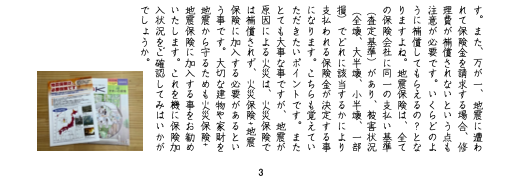 す。また、万が一、地震に遭わ
れて保険金を請求する場合、修
理費が補償されないという点も
注意が必要です。いくらどのよ
うに補償してもらえるの？とな
りますよね。地震保険は、全て
の保険会社に同一の支払い基準
（査定基準）があり、被害状況
（全壊、大半壊、小半壊、一部
損）でどれに該当するかにより
支払われる保険金が決定する事
になります。こちらも覚えてい
ただきたいポイントです。また
とても大事な事ですが、地震が
原因による火災は、火災保険で
は補償されず、火災保険+地震
保険に加入する必要があるとい
う事です。大切な建物や家財を
地震から守るためも火災保険+
地震保険に加入する事をお勧め
いたします。これを機に保険加
入状況をご確認してみはいかが
でしょうか。
3